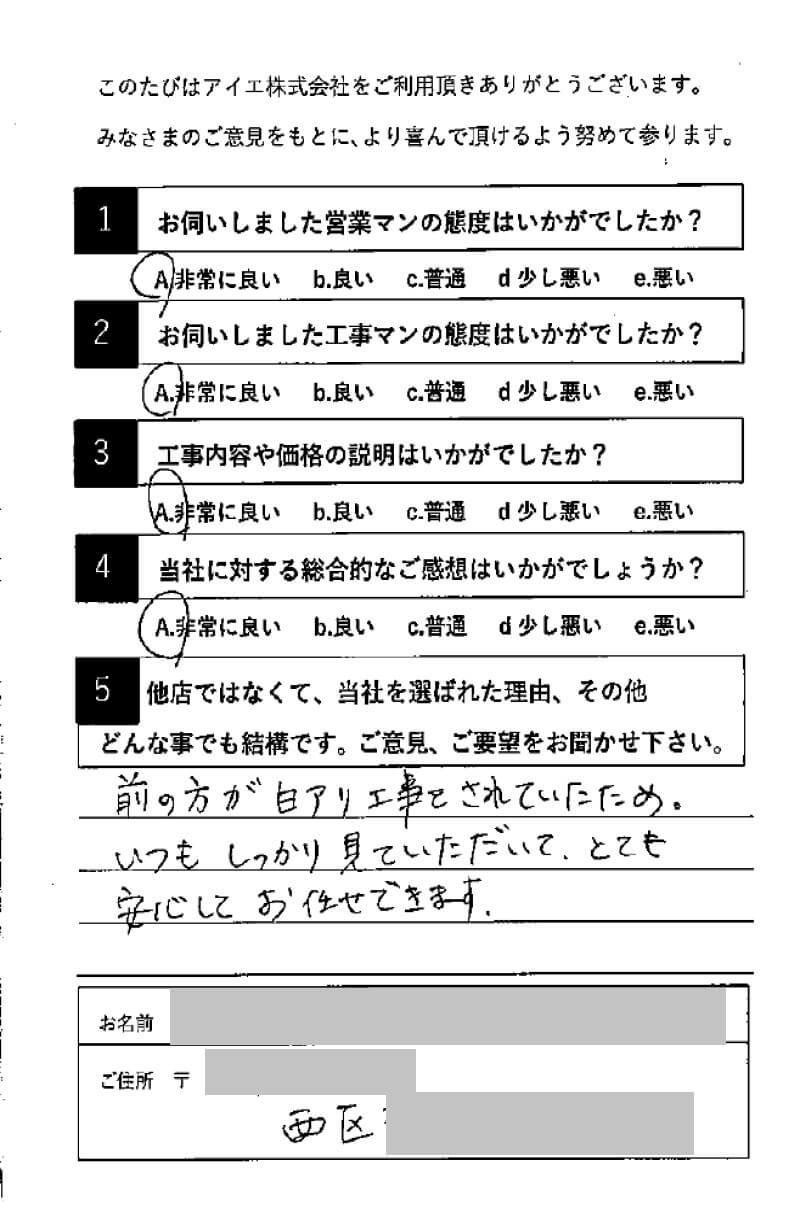 このたびはアイエ株式会社をご利用頂きありがとうございます。
みなさまのご意見をもとに、より喜んで頂けるよう努めて参ります。
1 お伺いしました営業マンの態度はいかがでしたか？
A.非常に良い b.良い c.普通 d少し悪い e.悪い
2 お伺いしました工事マンの態度はいかがでしたか？
A.非常に良い b.良い c.普通 d少し悪い e.悪い
3 工事内容や価格の説明はいかがでしたか？
A.非常に良い b.良い c.普通 d少し悪い e.悪い
4 当社に対する総合的なご感想はいかがでしょうか？
A.非常に良い b.良い c.普通 d少し悪い e.悪い
5 他店ではなくて、当社を選ばれた理由、その他
どんな事でも結構です。ご意見、ご要望をお聞かせ下さい。
前の方が白アリ工事をされていたため。
いつも しっかり見ていただいて、とても
安心して お任せできます.
お名前
ご住所 〒
西区